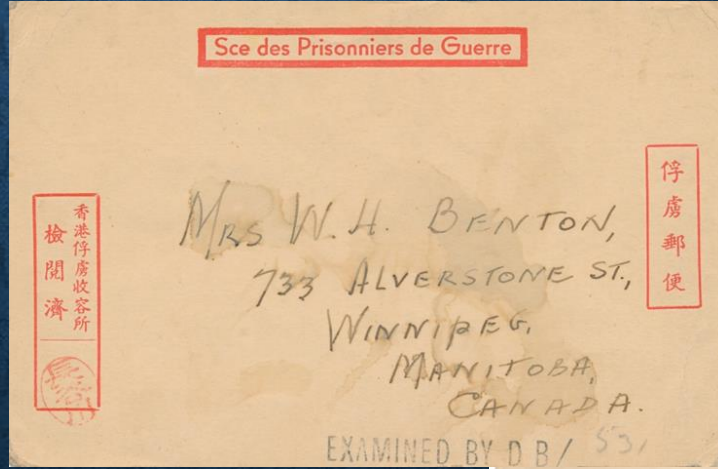 Sce des Prisonniers de Guerre
俘虜郵便
香港俘虜收容所
檢閲濟
MRS W. H. BENTON,
733 ALVERSTONE ST.,
WINNIPEG,
MANITOBA,
CANADA.
EXAMINED BY D B/ 531